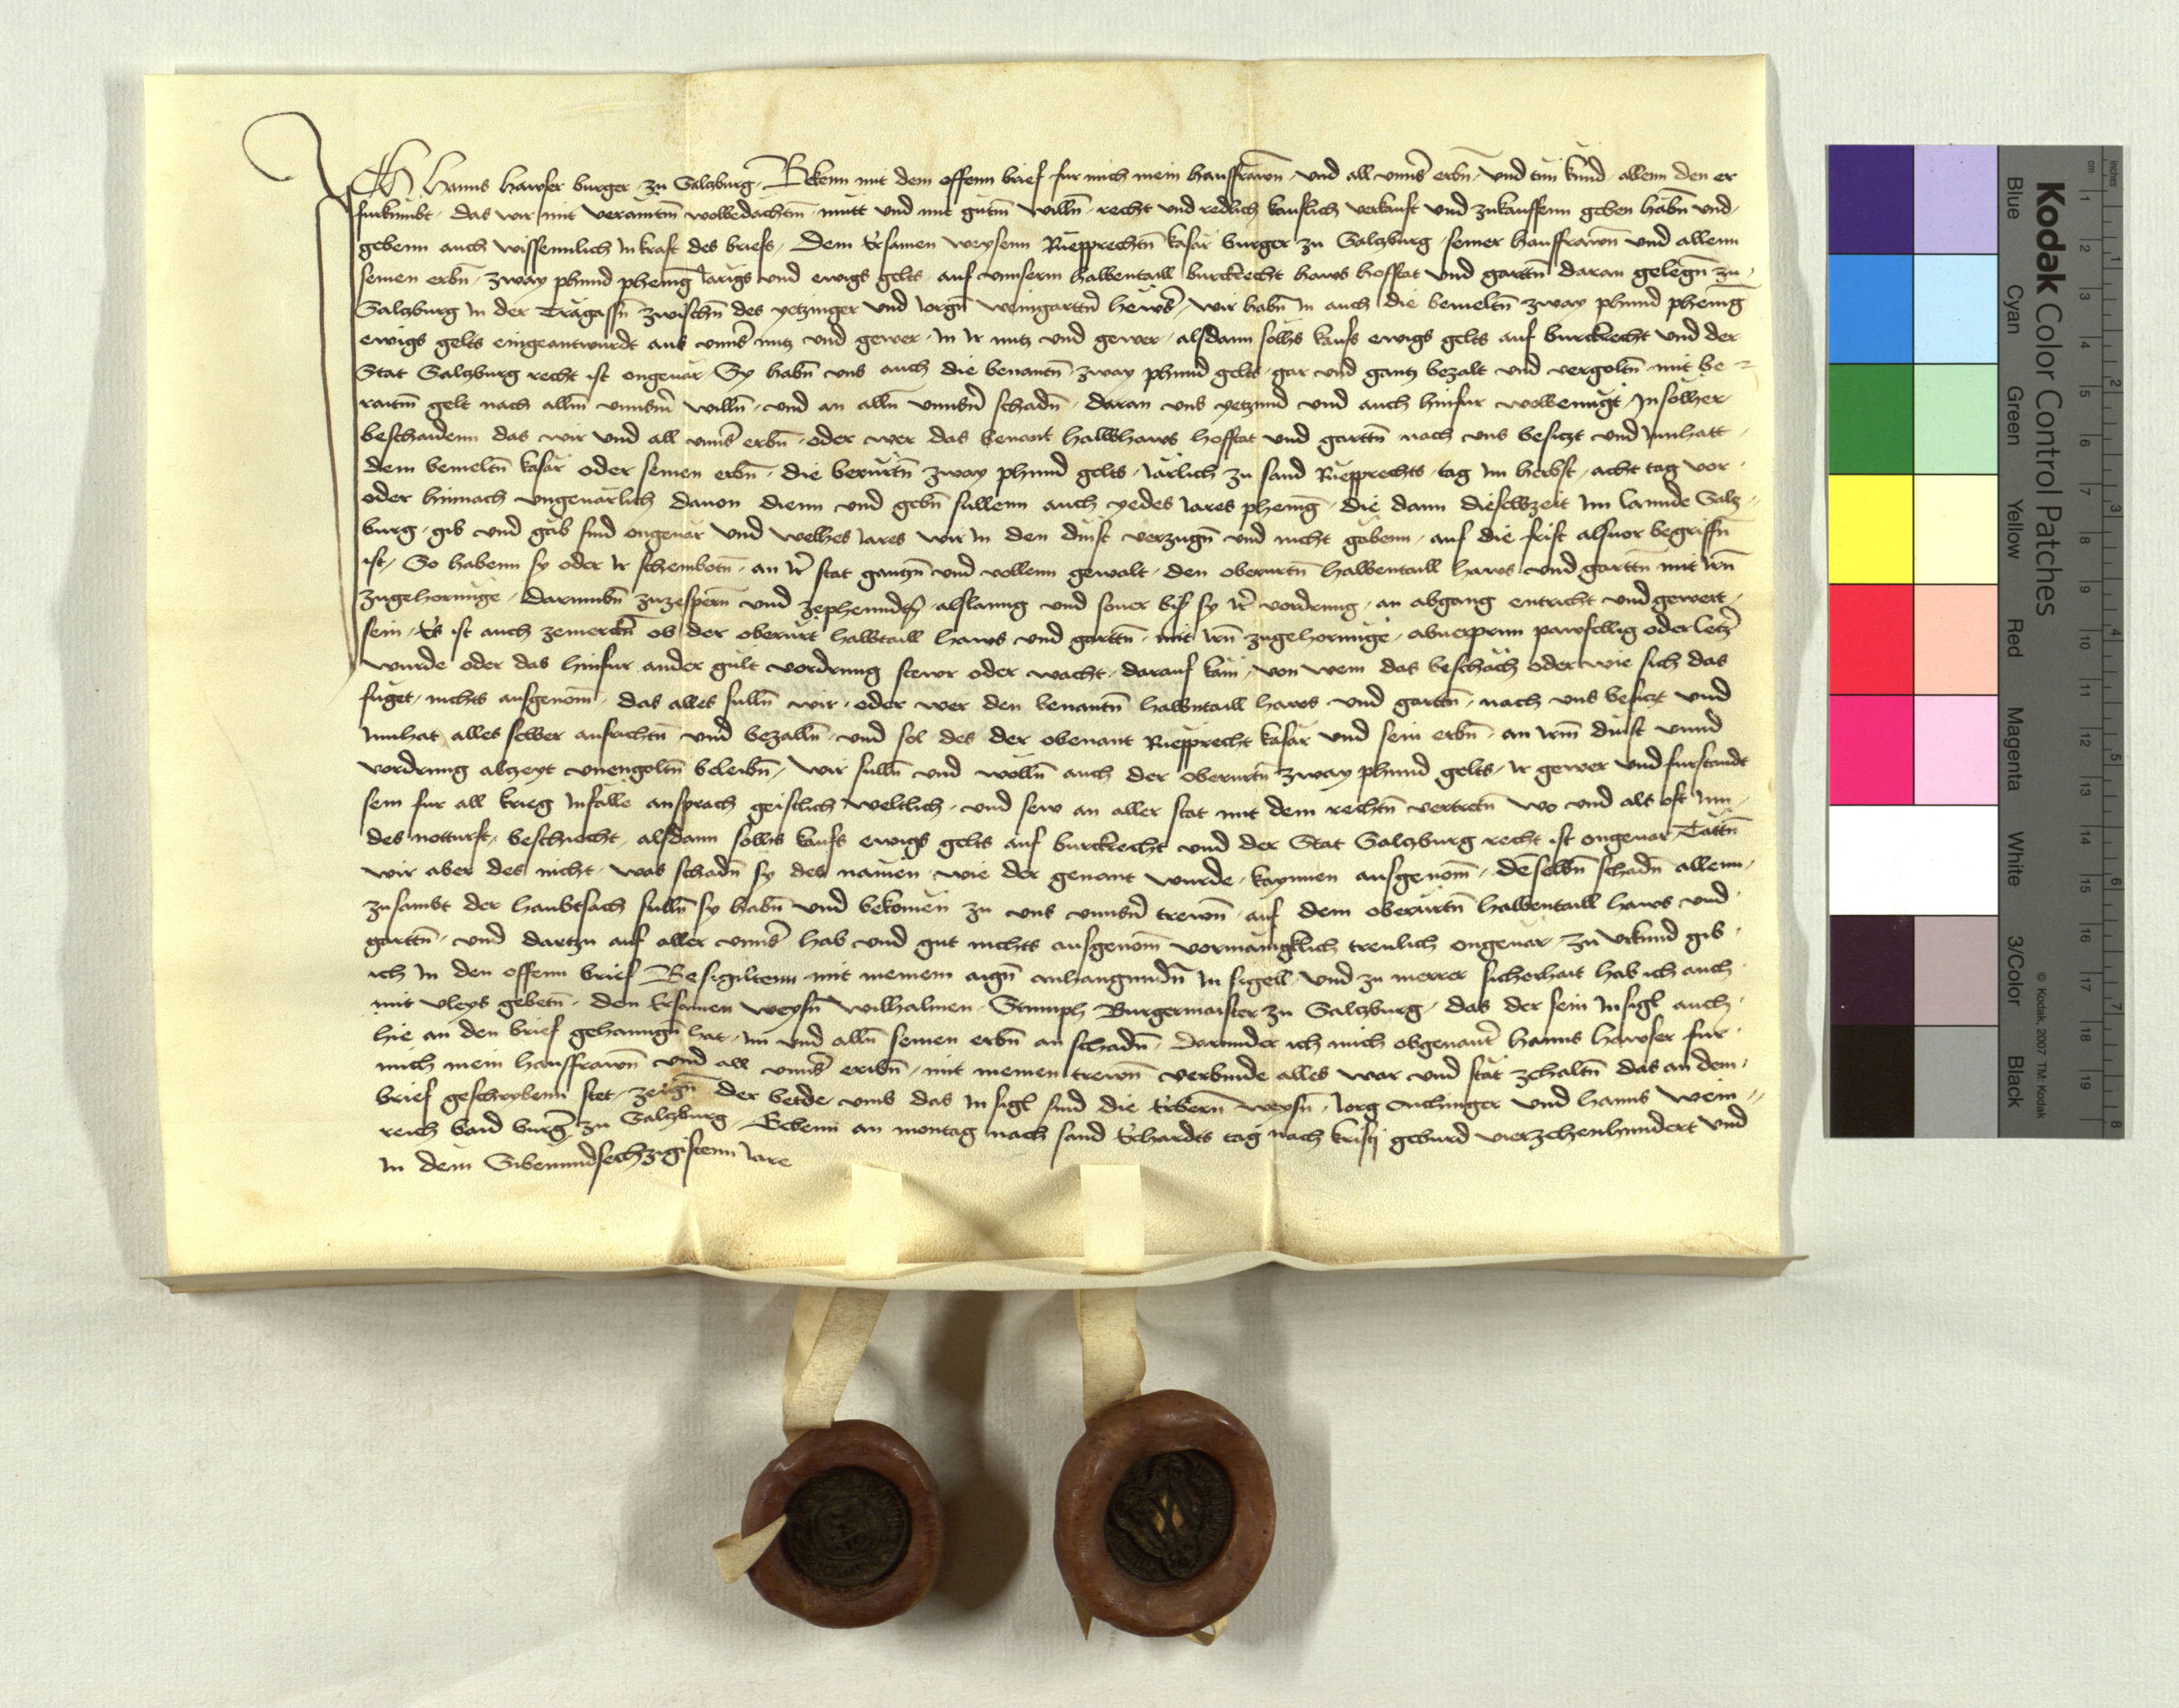 Ich Hanns Hawser burger zu Salzburg Bekenn mit dem offenn brief fur mich mein hausfrawn̄ und all unns̄ erbn̄ und tun kund allenn den er
furkumbt das wir mit veraintm̄ wolbedachtm̄ mutt und mit gutm̄ willn̄ recht und redlich kauflich verkauft und zukauffenn geben habn̄ und
gebenn auch wissennlich In kraft des briefs Dem Ersamen weysenn Rueprechtn̄ kasar burger zu Salzburg seiner hausfrawn̄ und allenn
seinen erbn̄ zway phund pheniḡ Iarigs und ewigs gelts auf unnserm halbentaill burckrecht haws hofstat und garttn̄ daran gelegn̄ zu
Salzburg In der Tragassn̄ zwischn̄ des yetzinger und Iorgn̄ weingarttn̄ hewsr̄ wir habn̄ In auch die bemeltn̄ zway phund pheniḡ
ewigs gelts eingeantwurdt aus unns̄ nutz und gewer In Ir nutz und gewer alsdann solhs kaufs ewigs gelts auf burckrecht und der
Stat Salzburg recht ist ongeuar Sy habn̄ uns auch die benantn̄ zway phund gelts gar und gantz bezalt und vergoltn̄ mit be
raitm̄ gelt nach allm̄ unnsm̄ willn̄ und an alln̄ unnsn̄ schadn̄ daran uns yetzund und auch hinfur wolbenugt In solher
beschaidenn das wir und all unns̄ erbn̄ oder wer das benant halbhaws hofstat und garttn̄ nach uns besitzt und Innhatt
dem bemeltn̄ kasar oder seinen erbn̄ die berurtn̄ zway phund gelts Iarlich zu sand Rueprechts tag Im herbst acht tag vor
oder hinnach ungeuarlich dauon dienn und gebn̄ sullenn auch yedes Iares pheniḡ die dann dieselbzeit Im lannde Salz
burg gib und gab sind ongeuar Und welhes Iares wir In den dinst verzugn̄ und nicht gabenn auf die frist alsuor begriffn̄
ist So habenn sy oder Ir scheinbotn̄ an Ir̄ stat gantzn̄ und vollenn gewalt den oberurtn̄ halbentaill haws und garttn̄ mit Irn̄
zugehorunge darumbn̄ zuzespern̄ und zephenndn̄ alslanng und souer bis sy Ir̄ vordrung an abgang entricht und gewert
sein Es ist auch zemerckn̄ ob der oberurt halbtaill haws und garttn̄ mit Irn̄ zugehorunge abuerprun pawfellig oder letz̄
wurde oder das hinfur ander gult vordrung stewr oder wacht darauf kam von wem das beschach oder wie sich das
fuget nichts ausgenom̄ das alles sulln̄ wir oder wer den benantn̄ halbntaill haws und garttn̄ nach uns besitzt und
Innhat alles selber ausrichtn̄ und bezalln̄ und sol des der obenant Rueprecht kasar und sein erbn̄ an Irm̄ dinst unnd
vordrung alzeyt unengoltn̄ beleibn̄ Wir sulln̄ und wolln̄ auch der oberurtn̄ zway phund gelts Ir gewer und furstandt
sein fur all krieg Infalle ansprach geistlich weltlich und sew an aller stat mit dem rechtn̄ vertretn̄ wo und als oft Inn
des notturft beschiecht alsdann solhs kaufs ewigs gelts auf burckrecht und der Stat Salzburg recht ist ongeuar Tattn̄
wir aber des nicht was schadn̄ sy des namen wie der genant wurde kaynnen ausgenom̄ deselbn̄ schadn̄ allenn
zusambt der haubtsach sulln̄ sy habn̄ und bekomen zu uns unnsn̄ trewn̄ auf dem oberurtn̄ halbentaill haws und
garttn̄ und dartzu auf aller unns̄ hab und gut nichts ausgenom̄ vormanigklich treulich ongeuar zu urkund gib
ich In den offenn brief Besigiltenn mit meinem aign̄ anhangundn̄ In sigell Und zu merrer sicherhait hab ich auch
mit vleys gebetn̄ den Ersamen weysn̄ Wilhalmen Stumph Burgermaister zu Salzburg das der sein Insigl auch
hie an den brief gehanngn̄ hat Im und alln̄ seinen erbn̄ an schadn̄ Darunder ich mich obgenantr̄ Hanns Hawser fur
mich mein hausfrawn̄ und all unns̄ eribn̄ mit meinen trewn̄ verbinde alles war und stat zehaltn̄ das an dem
brief geschrybenn stet zewgn̄ der betde umb das Insigl sind die Erbern̄ weysn̄ Iorg Onchinger und Hanns Wein
reich baid burgr̄ zu Salzburg Gebenn an montag nach sand Erhardts tag nach kristj geburd vierzehenhundert Und
In dem Sibenundsechzigistenn Iare
Kodak Color Control Patches
© Kodak, 2007 TM: Kodak
Blue Cyan Green Yellow Red Magenta White 3/Color Black
inches 1 2 3 4 5 6 7 8
cm 1 2 3 4 5 6 7 8 9 10 11 12 13 14 15 16 17 18 19